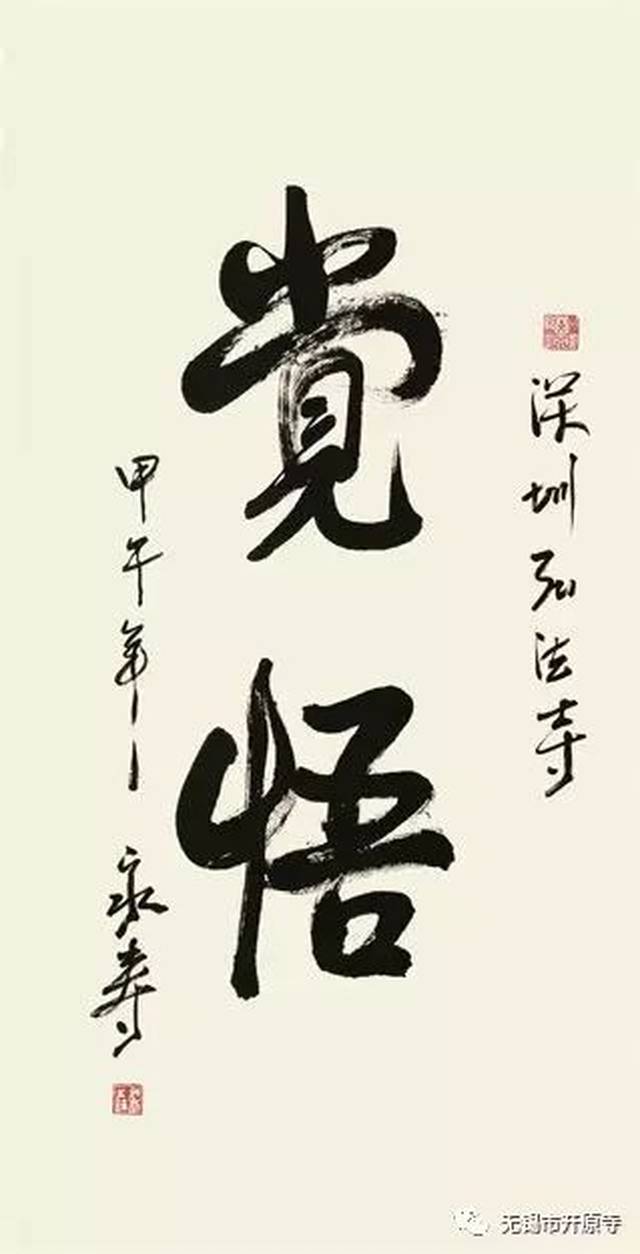 深圳弘法寺
覚悟
甲午年
永寿
无锡市开原寺